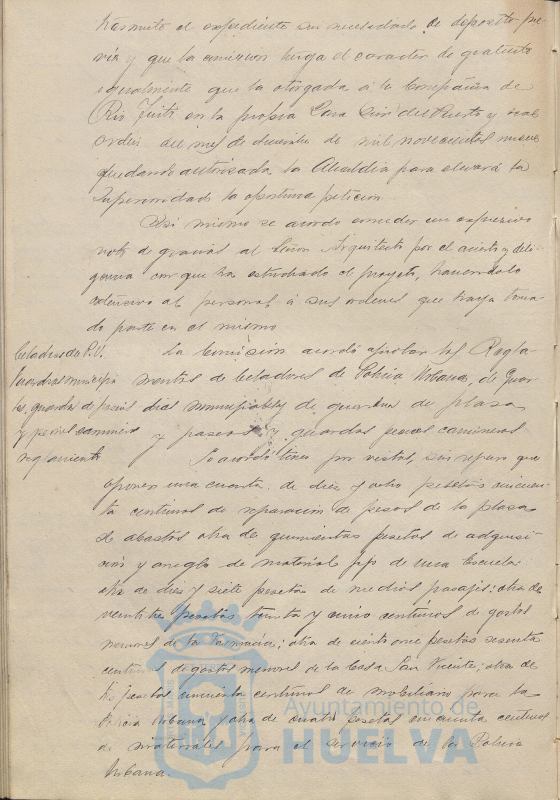 trasmite el expediente sin necesidad de deposito pre
vio y que la concesion tenga el caracter de gratuita
igualmente que la otorgada á la Compañia de
Rio Tinto en la propia Zona del Puerto y Real
orden del mes de Diciembre de mil novecientos nueve
quedando autorizada la Alcaldia para elevar á la
Superioridad la oportuna peticion.
Asi mismo se acordó conceder un expresivo
voto de gracias al Señor Arquitecto por el acierto y dili
gencia con que ha estudiado el proyecto, haciendolo
extensivo al personal á sus ordenes que haya toma
do parte en el mismo
Celadores de P.U.
Guardias municipa
les, guardas de paseos
y peones camineros
reglamento
La Comisión acordó aprobar los Regla
mentos de Celadores de Policia Urbana, de Guar
dias municipales, de guardas de plazas
y paseos y guardas peones camineros
Se acordó tener por vistas, sin reparo que
oponer una cuenta de diez y ocho pesetas cincuen
ta centimos de reparacion de pesos de la plaza
de abastos otra de quinientas pesetas de adquisi
cion y arreglo de material fijo de una Escuela
otra de diez y siete pesetas de medios pasajes; otra de
veintitres pesetas treinta y cinco centimos de gastos
menores de la Farmacia; otra de ciento once pesetas sesenta
centimos de gastos menores de la Casa San Vicente; otra de
tres pesetas cincuenta centimos de mobiliario para la
Policia Urbana y otra de cuatro pesetas cincuenta centimos
de materiales para el servicio de la Policia
Urbana.
Ayuntamiento de
HUELVA